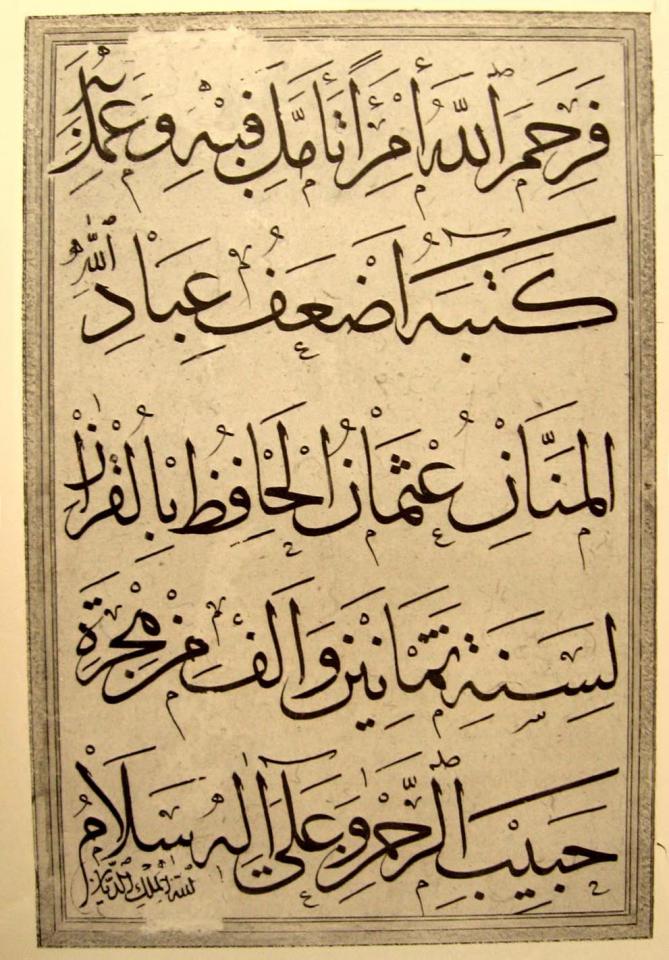 فَرَحِمَ ٱللّٰهُ أَمْرَأً تَأَمَّلَ فِيهِ وَعَمِلَ بِهِ
كَتَبَهُ أَضْعَفُ عِبَادِ اللّٰهِ
الْمَنَّانِ عُثْمَانُ الْحَافِظُ بِالْقُرْاٰنِ
لِسَنَةِ ثَمَانِينَ وَأَلْفٍ مِنْ هِجْرَةِ
حَبِيبِ الرَّحْمٰنِ وَعَلَى آلِهِ سَلَامُ
اللّٰهِ الْمَلِكِ الدَّيَّانِ